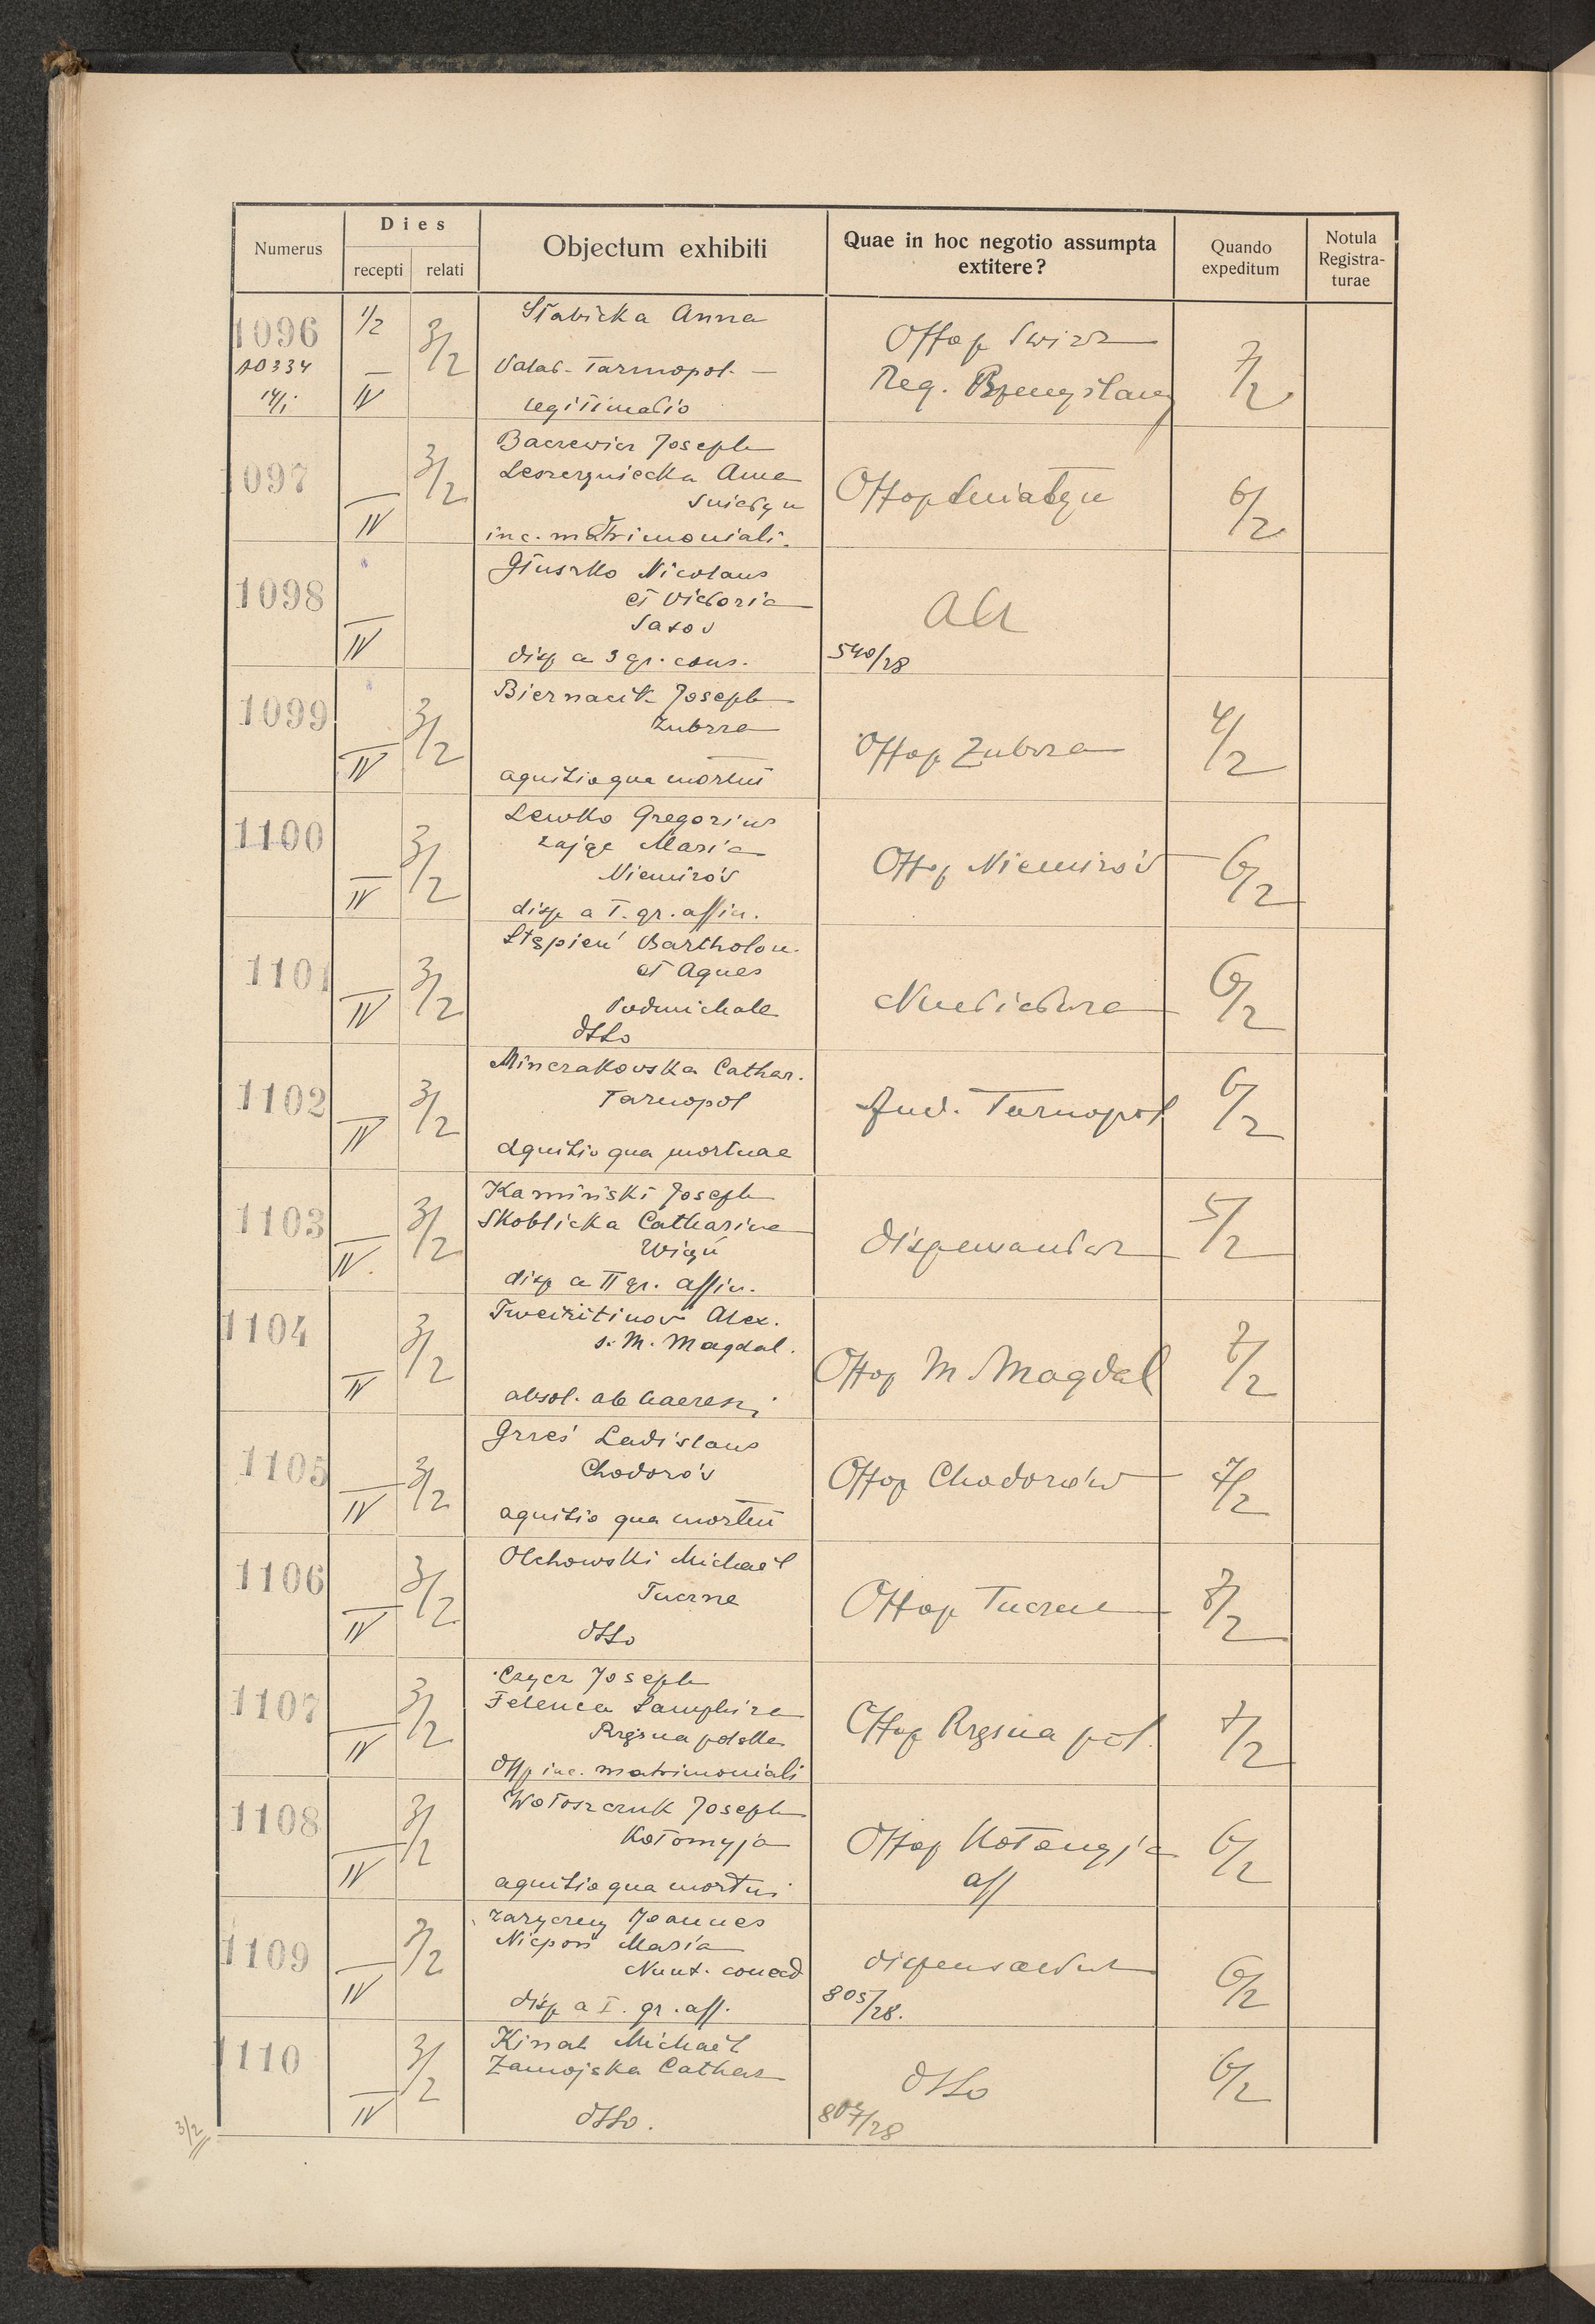 Numerus
Dies
recepti relati
Objectum exhibiti
Quae in hoc negotio assumpta
extitere?
Quando
expeditum
Notula
Registra-
turae
1096
10334
14/I
1/2
IV
3/2
Słabicka Anna
Tarnopol.
legitimatio
Offop Swirz
7/2
1097
IV
3/2
Joseph
Anna
Sniatyn
inc. matrimoniali.
Offop Sniatyn
6/2
1098
IV
Głuszko Nicolaus
et Victoria
Sasov
disp a 3 gr. cons.
540/28
1099
IV
3/2
Joseph
Zubrza
agnitio qua mortui
Offop Zubrza
4/2
1100
IV
3/2
Lewko Gregorius
Zając Maria
Niemirów
disp a I. gr. affin.
Offop Niemirów
6/2
1101
IV
3/2
Stępień Bartholom.
et Agnes
Podmichale
dtto
6/2
1102
IV
3/2
Minczakowska Cathar.
Tarnopol
agnitio qua mortuae
Tarnopol
6/2
1103
IV.
3/2
Kamiński Joseph
Skoblicka Catharina
disp a II gr. affin.
dispensantur
5/2
1104
IV
3/2
Alex.
s. M. Magdal.
absol. ab haeresi
Offop M. Magdal
7/2
1105
IV
3/2
Grześ Ladislaus
Chodorów
agnitio qua mortui
Offop Chodorów
7/2
1106
IV
3/2
Olchowski Michaël
Tuczne
dtto
Offop Tuczne
8/2
1107
IV
3/2
Czycz Joseph
Felenca Samphira
Rzęsna polska
Offop inc. matrimoniali
Offop Rzęsna pol.
7/2
1108
IV
3/2
Wołoszczuk Joseph
Kołomyja
agnitio qua mortui
Offop Kołomyja
aff
6/2
1109
IV
3/2
Zaryczny Joannes
Niepoń Maria
disp a I. gr. aff.
dispensantur
805/28.
6/2
1110
IV
3/2
Kinal Michaël
Zamojska Cathar
dtto.
dtto
807/28
6/2
3/2